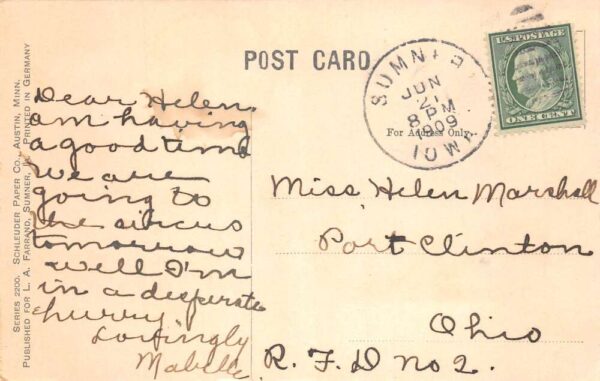 SERIES 2200. SCHLEUDER PAPER CO., AUSTIN, MINN.
PUBLISHED FOR L. A. FARRAND, SUMNER, IA. PRINTED IN GERMANY
POST CARD.
SUMNER
JUN
21
8 PM
1909
IOWA
U.S. POSTAGE
ONE CENT
For Address Only.
Dear Helen,
am having
a good time
we are
going to
the circus
tomorrow
well I'm
in a desperate
hurry
Lovingly
Mabelle
Miss Helen Marshall
Port Clinton
Ohio
R. F. D No 2.